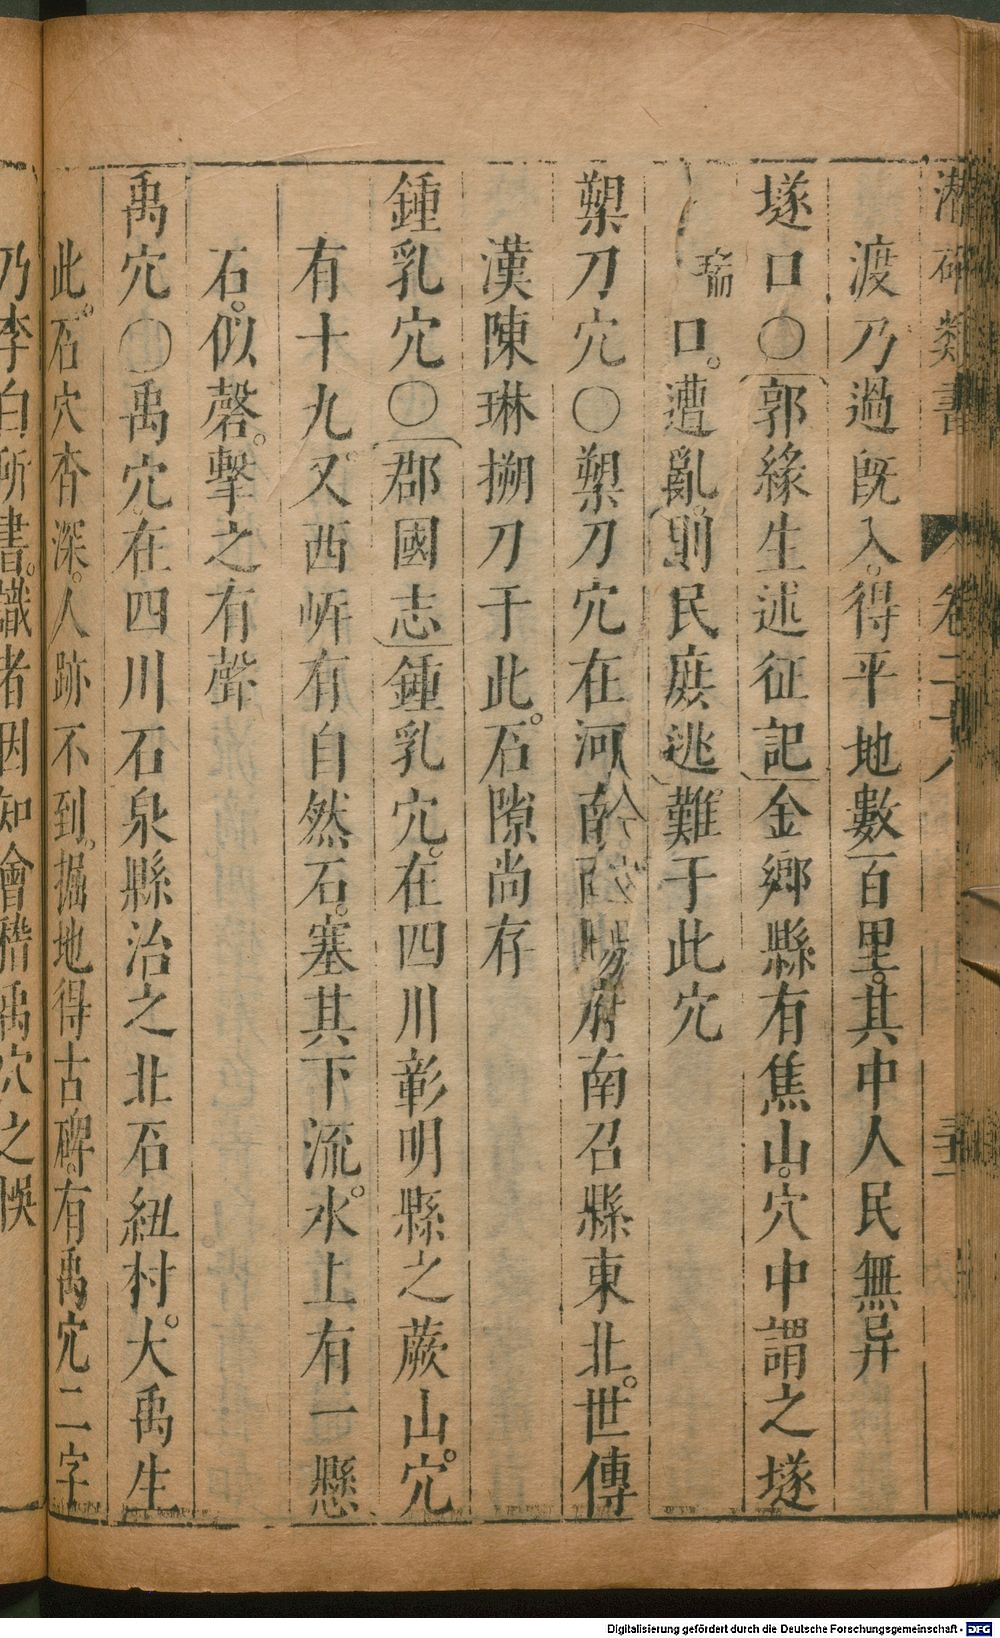 潛確類書 卷二十八
渡乃過既入。得平地數百里。其中人民無异
𡑞口〇郭緣生述征記金鄉縣有焦山。穴中謂之𡑞
瑞口。遭亂。則民庶逃難于此穴
槊刀穴〇槊刀穴在河南南陽府南召縣東北。世傳
漢陳琳搠刀于此。石隙尚存
鍾乳穴〇郡國志鍾乳穴。在四川彰明縣之蕨山。穴
有十九。又西岍有自然石。塞其下流。水上有一懸
石。似磬。擊之有聲
禹穴〇禹穴在四川石泉縣治之北石紐村。大禹生
此。石穴杳深。人跡不到。掘地得古碑。有禹穴二字
乃李白所書。識者因知會稽禹穴之悞
Digitalisierung gefördert durch die Deutsche Forschungsgemeinschaft - DFG